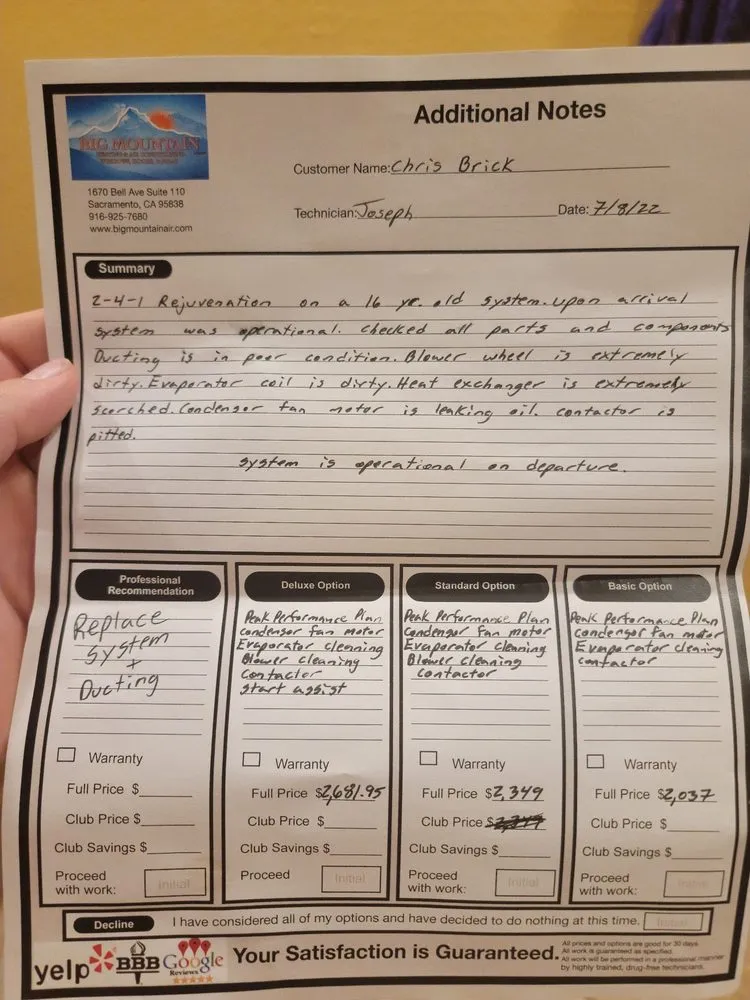 BIG MOUNTAIN
HEATING & AIR CONDITIONING
1670 Bell Ave Suite 110
Sacramento, CA 95838
916-925-7680
www.bigmountainair.com
Additional Notes
Customer Name: Chris Brick
Technician: Joseph Date: 7/8/22
Summary
2-4-1 Rejuvenation on a 16 yr. old system. upon arrival
system was operational. checked all parts and components
Ducting is in poor condition. Blower wheel is extremely
dirty. Evaporator coil is dirty. Heat exchanger is extremely
scorched. Condensor fan motor is leaking oil. contactor is
pitted.
system is operational on departure.
Professional
Recommendation
Replace
System
+
Ducting
Warranty
Full Price $
Club Price $
Club Savings $
Proceed
with work: Initial
Deluxe Option
Peak Performance Plan
Condensor fan motor
Evaporator cleaning
Blower cleaning
Contactor
start assist
Warranty
Full Price $2,681.95
Club Price $
Club Savings $
Proceed Initial
Standard Option
Peak Performance Plan
Condensor fan motor
Evaporator cleaning
Blower cleaning
Contactor
Warranty
Full Price $2,349
Club Price $2,349
Club Savings $
Proceed
with work: Initial
Basic Option
Peak Performance Plan
condensor fan motor
Evaporator cleaning
contactor
Warranty
Full Price $2,037
Club Price $
Club Savings $
Proceed
with work: Initial
Decline I have considered all of my options and have decided to do nothing at this time. Initial
yelp BBB Google
Reviews
Your Satisfaction is Guaranteed.
All prices and options are good for 30 days.
All work is guaranteed as specified.
All work will be performed in a professional manner
by highly trained, drug-free technicians.